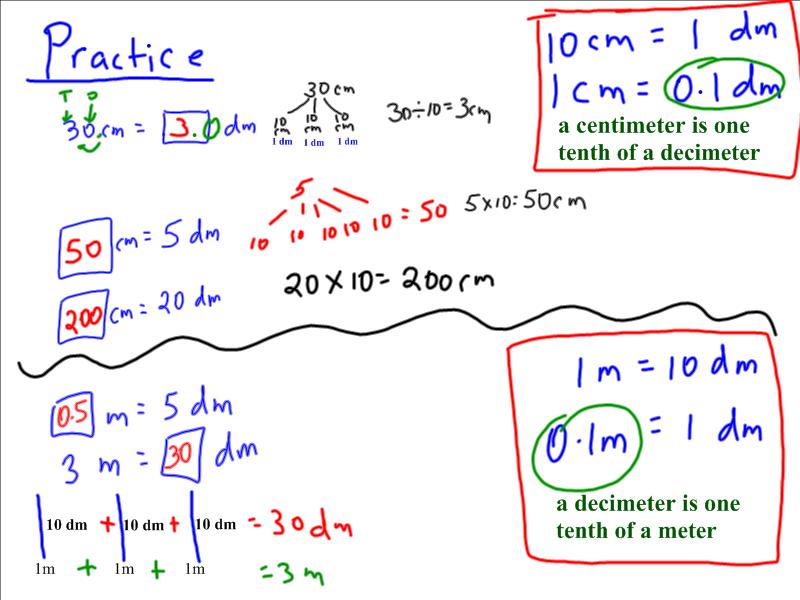 Practice
10 cm = 1 dm
1 cm = 0.1 dm
a centimeter is one
tenth of a decimeter
T O
30.cm = 3.0 dm
30 cm
10 cm 10 cm 10 cm
1 dm 1 dm 1 dm
30÷10=3cm
50 cm = 5 dm
5
10 10 10 10 10 = 50
5×10=50cm
200 cm = 20 dm
20×10=200cm
0.5 m = 5 dm
3 m = 30 dm
10 dm + 10 dm + 10 dm = 30 dm
1m + 1m + 1m = 3 m
1 m = 10 dm
0.1m = 1 dm
a decimeter is one
tenth of a meter